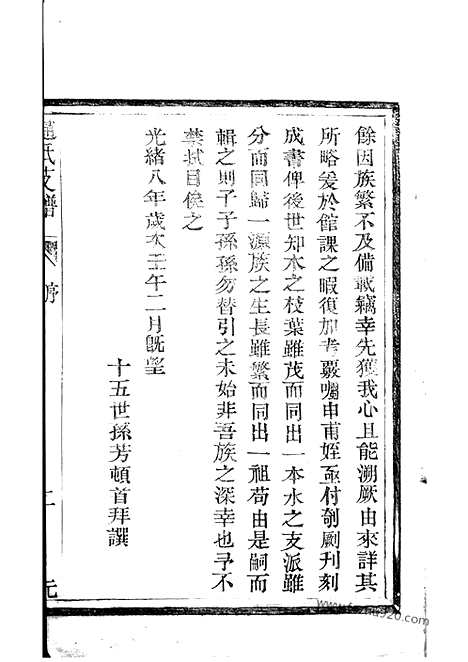 餘因族繁不及備載竊幸先獲我心且能溯厥由來詳其
所略爰於館課之暇復加考覈囑申甫姪亟付剞劂刊刻
成書俾後世知木之枝葉雖茂而同出一本水之支派雖
分而同歸一源族之生長雖繁而同出一祖苟由是嗣而
輯之則子子孫孫勿替引之未始非吾族之深幸也予不
禁拭目俟之
光緒八年歲次壬午二月既望
十五世孫芳頓首拜譔
氏支譜
序
二
元